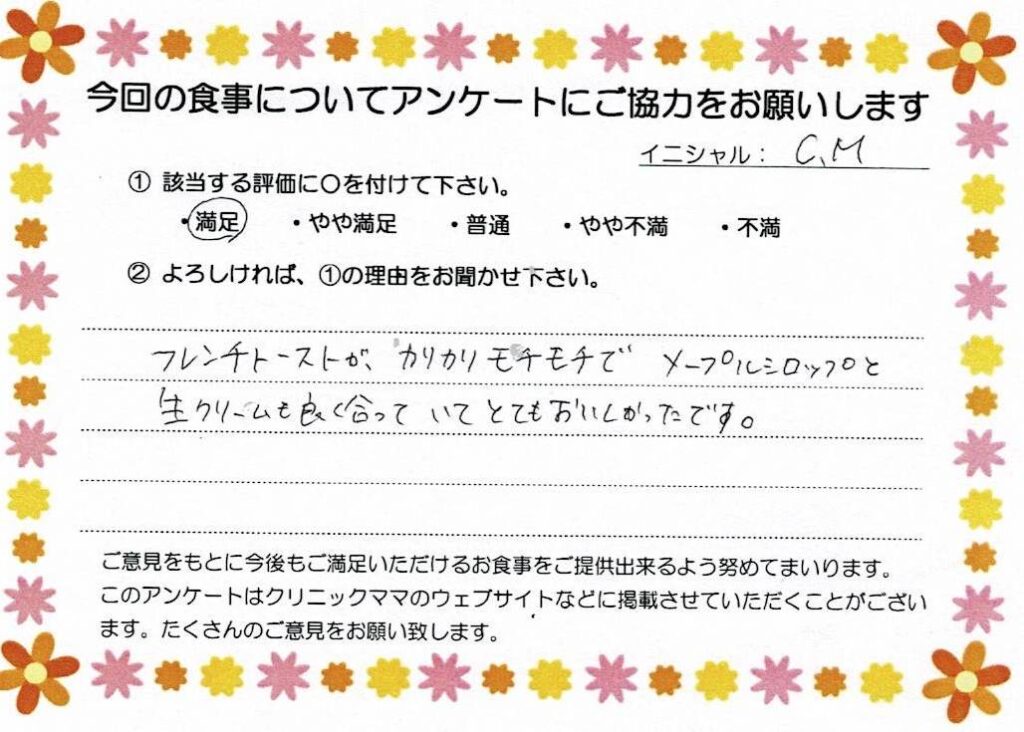 今回の食事についてアンケートにご協力をお願いします
イニシャル： C,M
① 該当する評価に〇を付けて下さい。
・満足 ・やや満足 ・普通 ・やや不満 ・不満
② よろしければ、①の理由をお聞かせ下さい。
フレンチトーストが、カリカリモチモチで メープルシロップと
生クリームも良く合って いて とても おいしかったです。
ご意見をもとに今後もご満足いただけるお食事をご提供出来るよう努めてまいります。
このアンケートはクリニックママのウェブサイトなどに掲載させていただくことがござい
ます。たくさんのご意見をお願い致します。